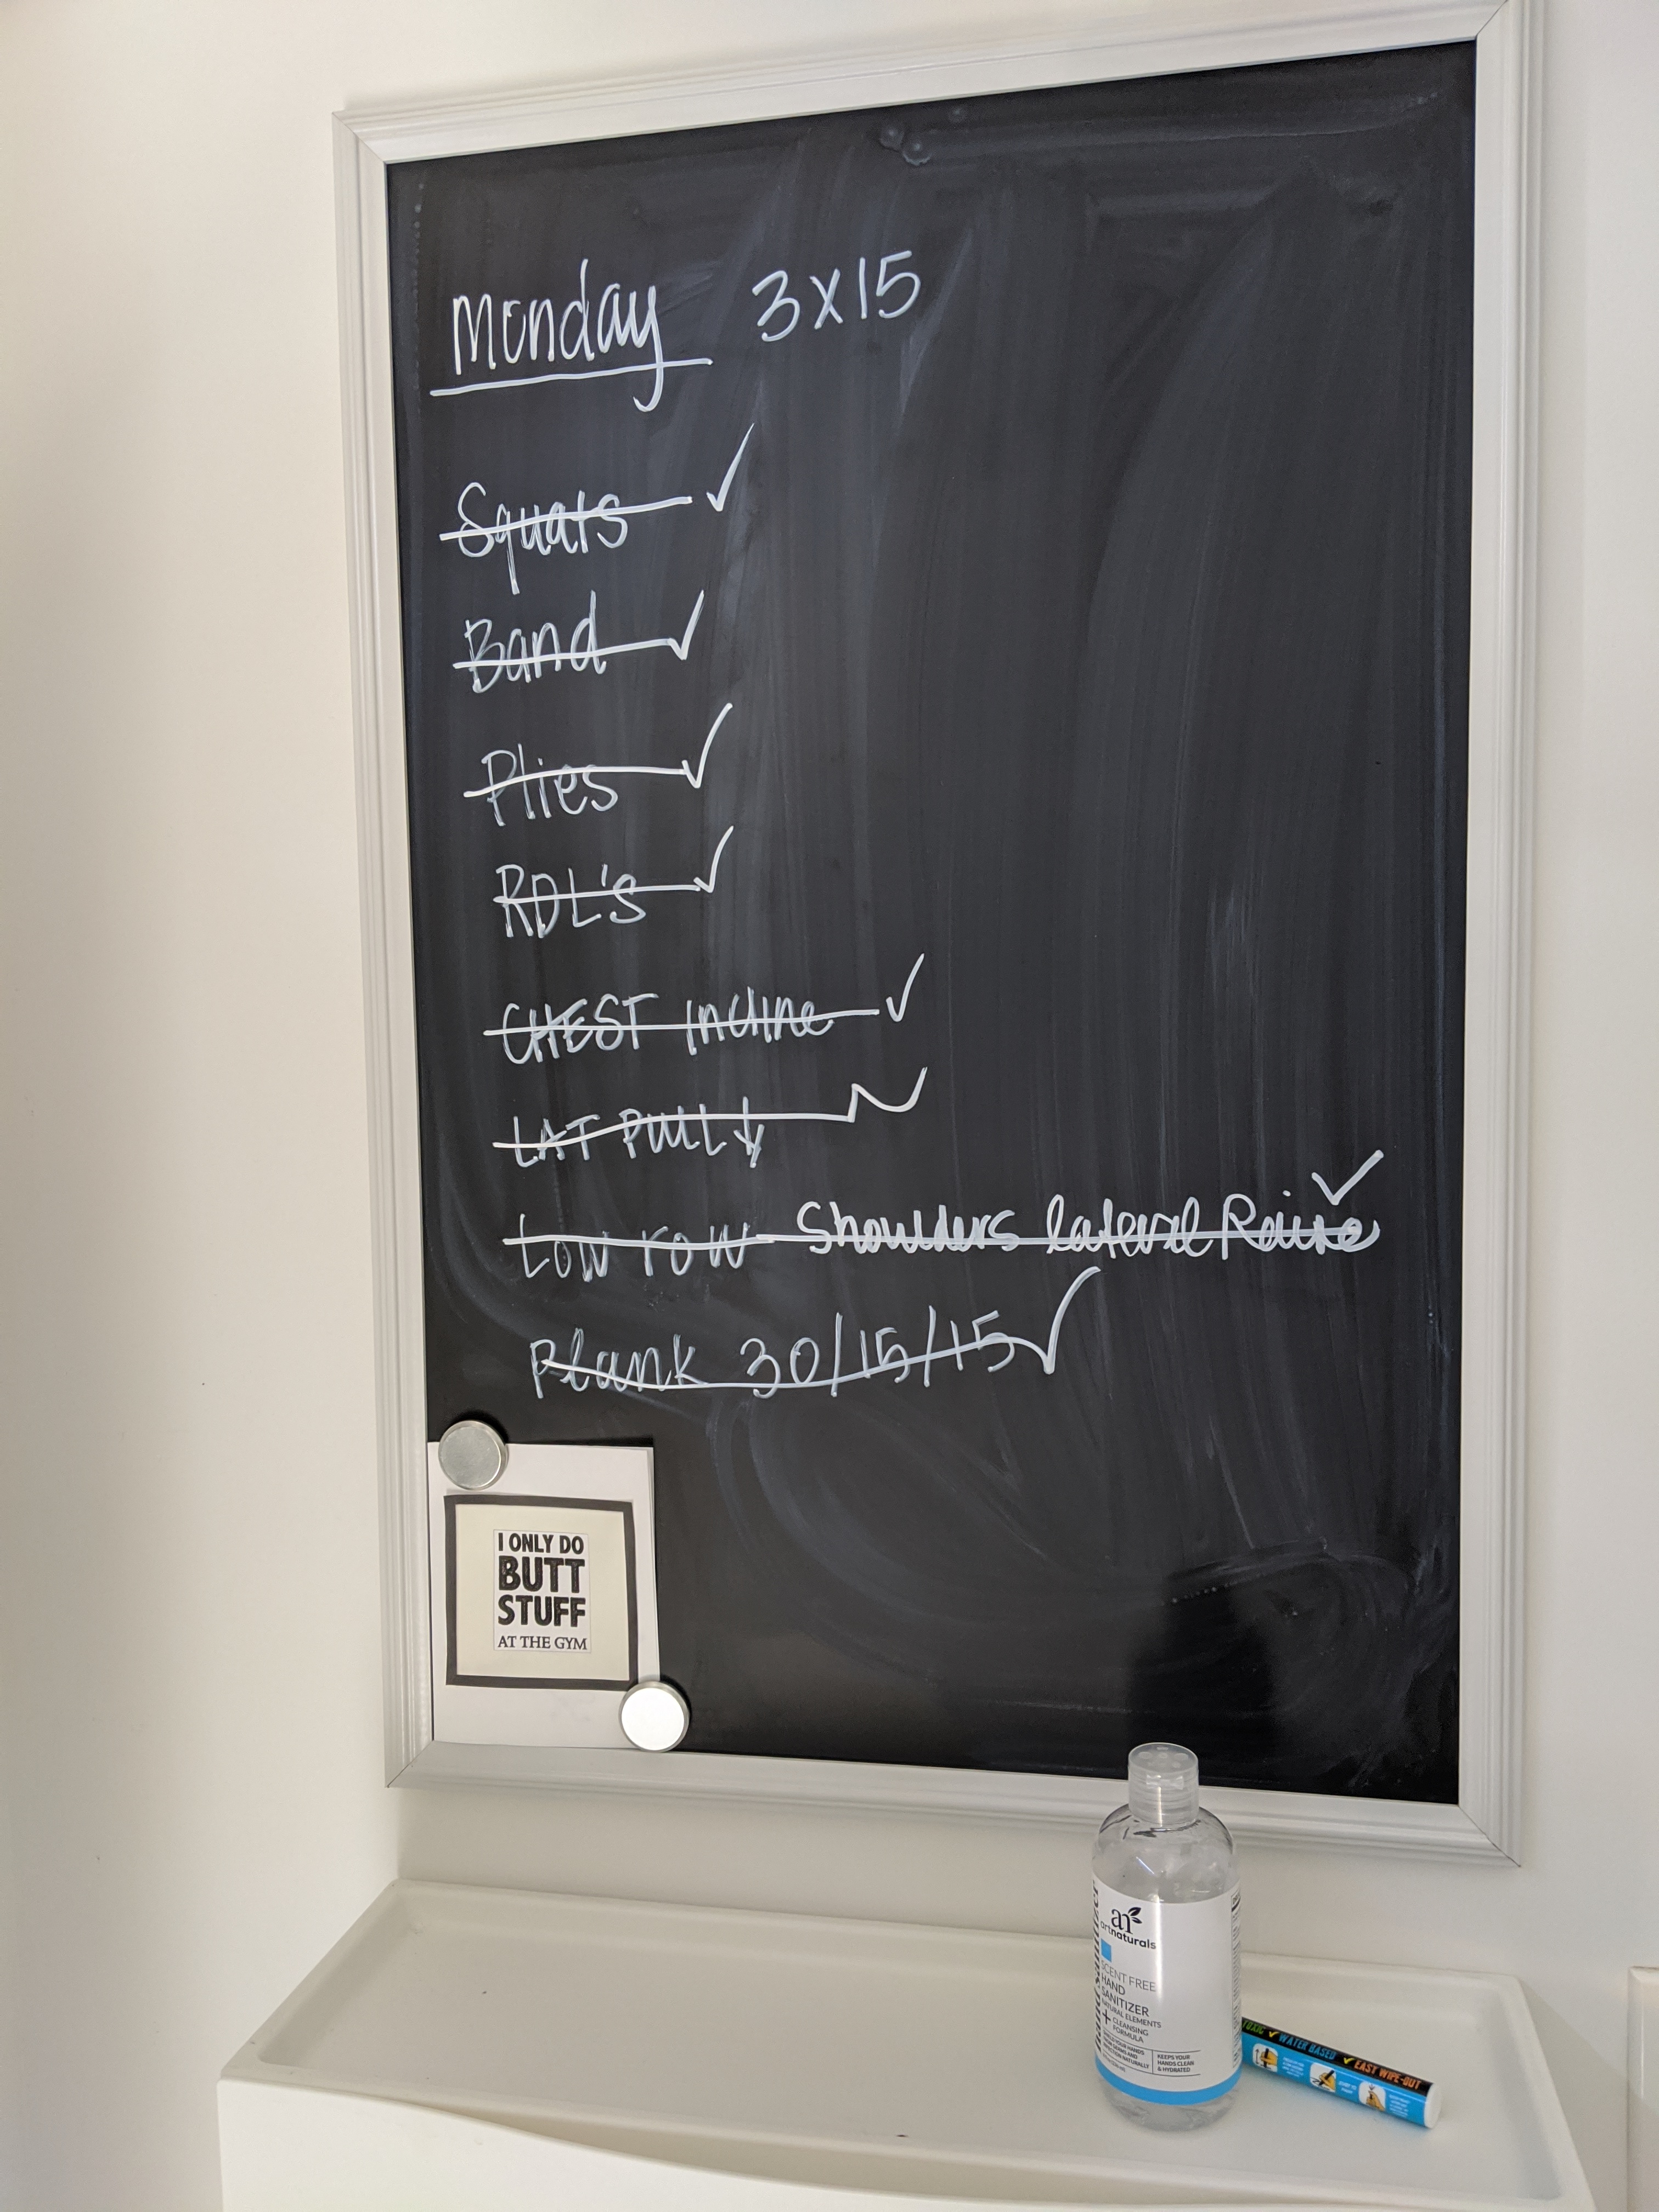 Monday 3x15
Squats ✓
Band ✓
Plies ✓
RDL's ✓
CHEST Incline ✓
LAT PULL ↓ ✓
Low row - Shoulders lateral Raise ✓
Plank 30/15/15 ✓
I ONLY DO
BUTT
STUFF
AT THE GYM
hand sanitizer
an
artnaturals
SCENT FREE
HAND
SANITIZER
NATURAL ELEMENTS
+ CLEANSING
FORMULA
KEEPS YOUR
HANDS CLEAN
& HYDRATED
TOXIC ✓ WATER BASED ✓ EASY WIPE-OUT